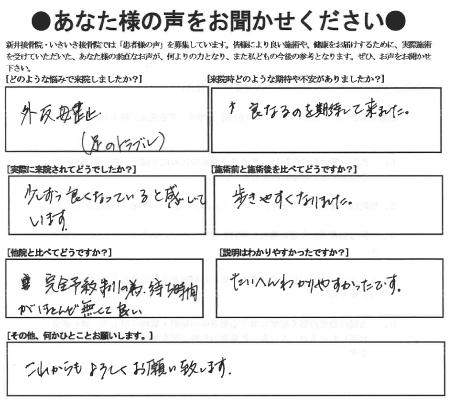 ●あなた様の声をお聞かせください●
新井接骨院・いきいき接骨院では「患者様の声」を募集しています。皆様により良い施術や、健康をお届けするために、実際施術
を受けていただいた、あなた様の素直なお声が、何よりの力となり、また私どもの今後の参考となります。ぜひ、お声をお聞かせ
下さい。
[どのような悩みで来院しましたか?]
外反母趾
(足のトラブル)
[来院時どのような期待や不安がありましたか?]
良なるのを期待して来ました。
[実際に来院されてどうでしたか?]
少しずつ良くなっていると感じて
います。
[施術前と施術後を比べてどうですか?]
歩きやすくなりました。
[他院と比べてどうですか?]
完全予約制の為、待ち時間
がほとんど無くて良い
[説明はわかりやすかったですか?]
たいへんわかりやすかったです。
[その他、何かひとことお願いします。]
これからもよろしくお願い致します。